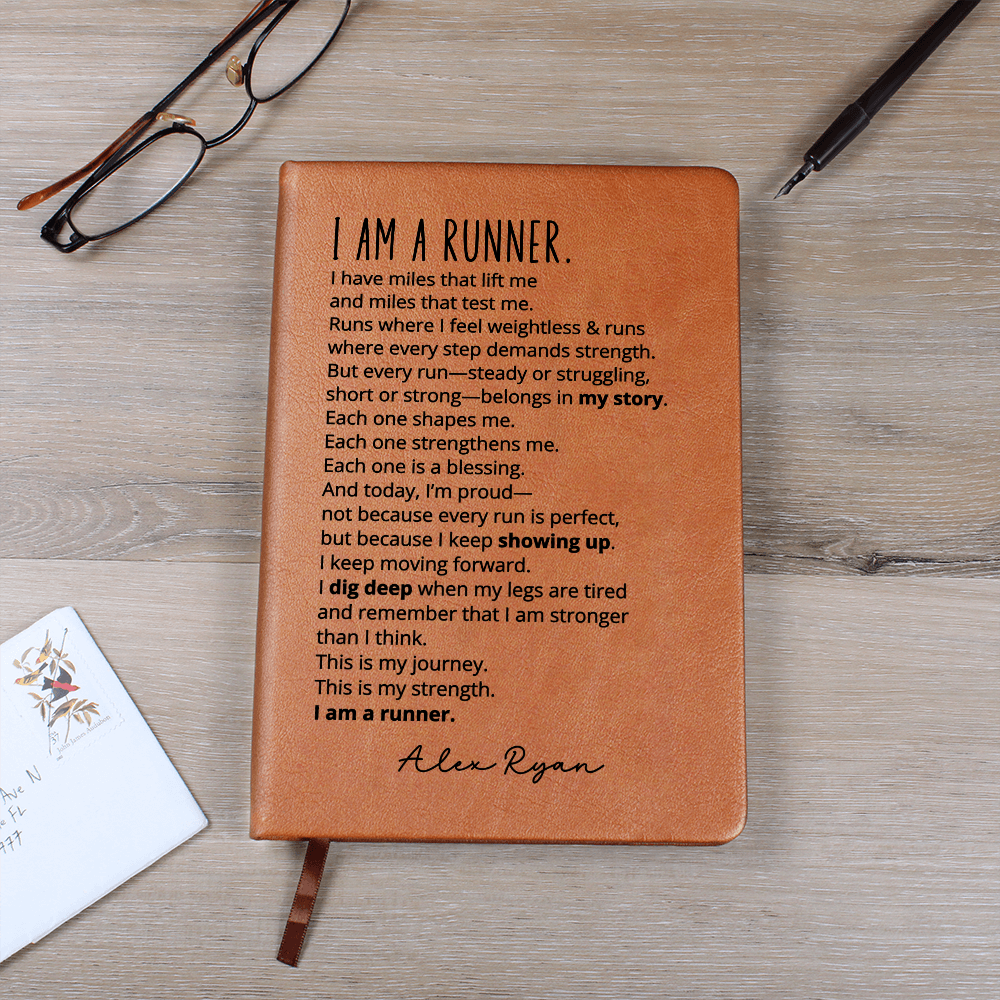 I AM A RUNNER.
I have miles that lift me
and miles that test me.
Runs where I feel weightless & runs
where every step demands strength.
But every run—steady or struggling,
short or strong—belongs in my story.
Each one shapes me.
Each one strengthens me.
Each one is a blessing.
And today, I’m proud—
not because every run is perfect,
but because I keep showing up.
I keep moving forward.
I dig deep when my legs are tired
and remember that I am stronger
than I think.
This is my journey.
This is my strength.
I am a runner.
Alex Ryan
John James Audubon
37
Ave N
FL
977